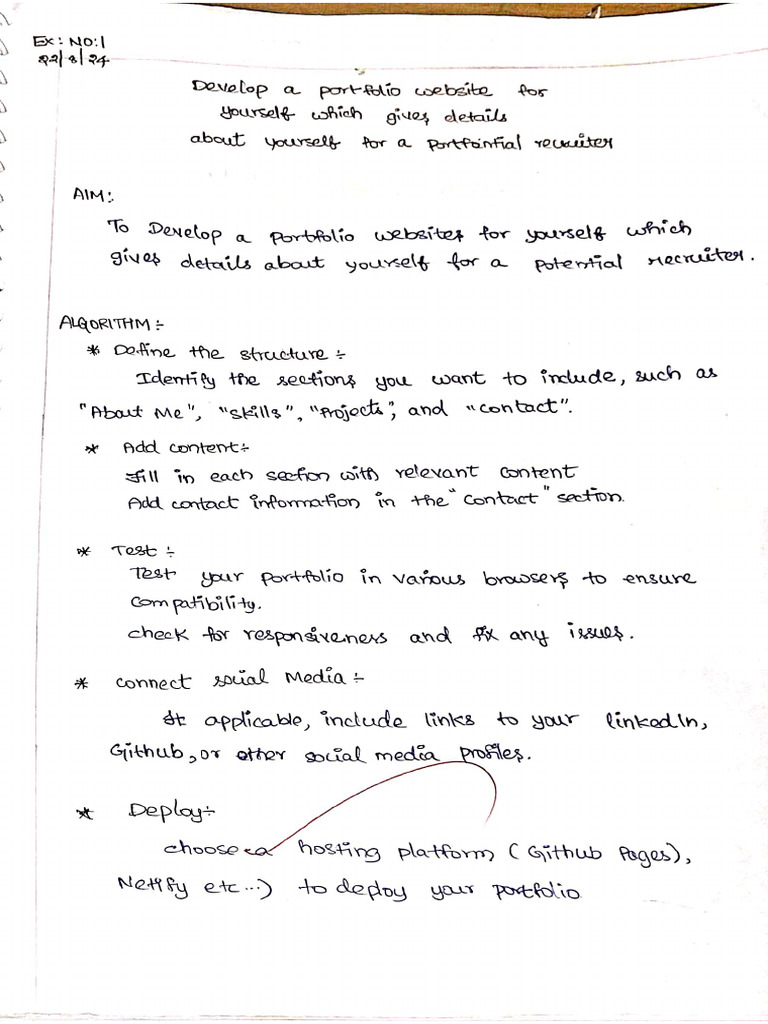 Ex: NO:1
22/8/24
Develop a portfolio website for
yourself which gives details
about yourself for a portfointial recruiter
AIM:
To Develop a portfolio websites for yourself which
gives details about yourself for a potential recruiter.
ALGORITHM:-
* Define the structure:-
Identify the sections you want to include, such as
"About Me", "Skills", "Projects", and "contact".
* Add content:-
Fill in each section with relevant content
Add contact information in the "contact" section.
* Test:-
Test your portfolio in various browsers to ensure
compatibility.
check for responsiveness and fix any issues.
* connect social Media:-
It applicable, include links to your linkedIn,
Github, or other social media profiles.
* Deploy:-
choose a hosting platform (Github Pages),
Netlify etc...) to deploy your portfolio